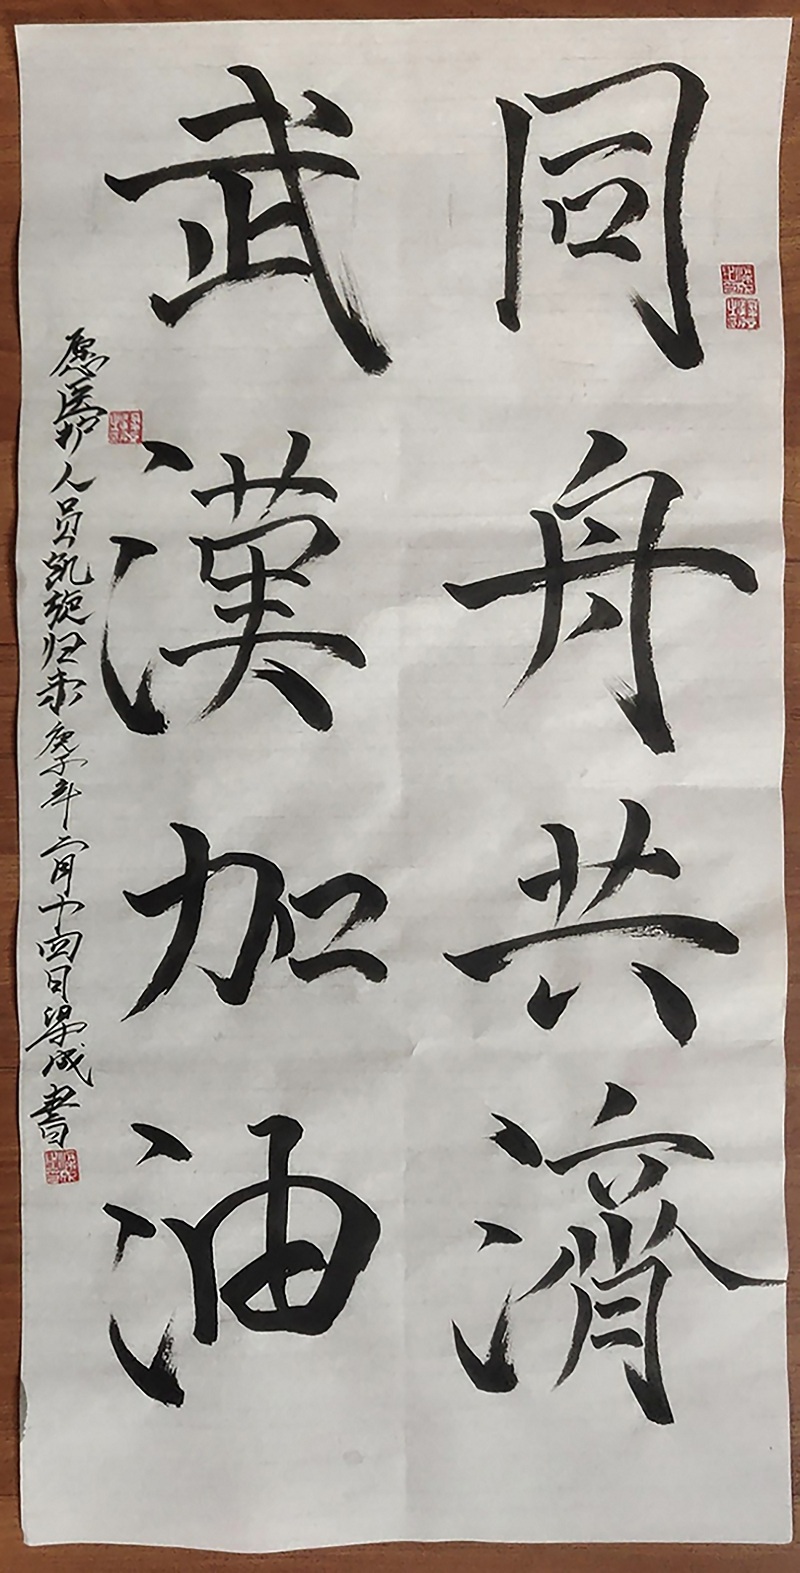 同舟共濟
武漢加油
愿医护人员凯旋归来庚子年二月十四日梁成書